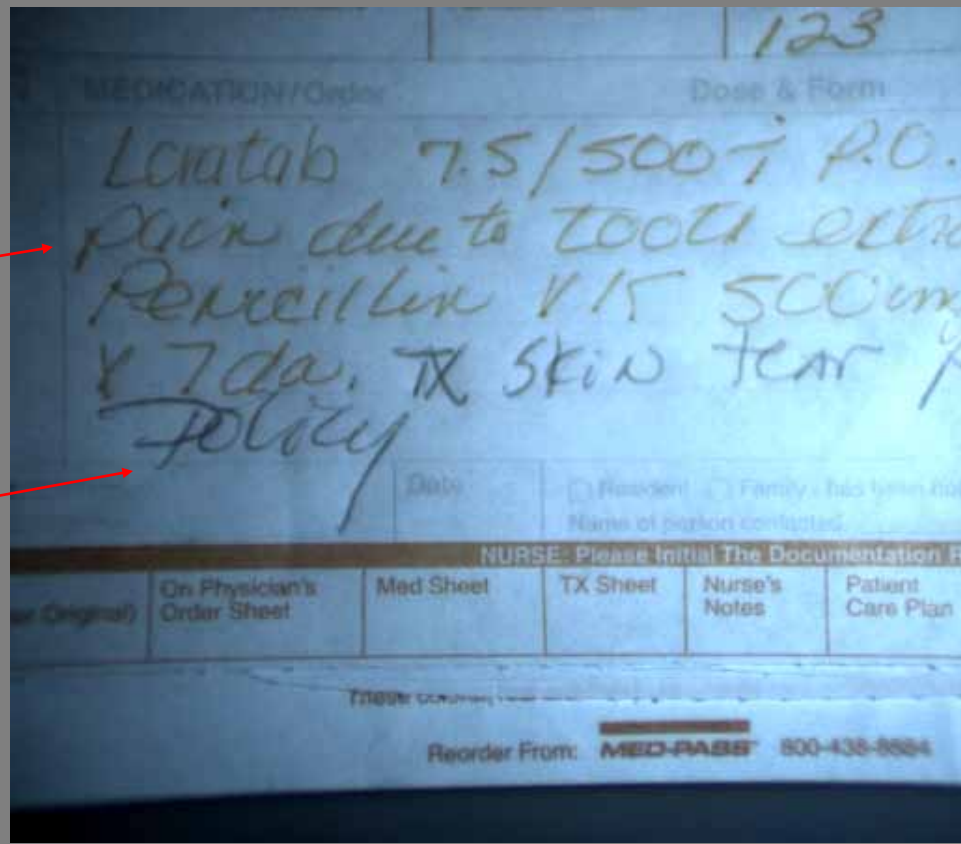 123
MEDICATION/Order Dose & Form
Loratab 7.5/500 i P.O.
pain due to tooth extra
Penicillin VK 500 m
x 7 da. TX Skin tear p
Policy
Date Resident Family - has been not
Name of person contacted
NURSE: Please Initial The Documentation R
Original) On Physician's Order Sheet Med Sheet TX Sheet Nurse's Notes Patient Care Plan
These
Reorder From: MED-PASS 800-438-8884